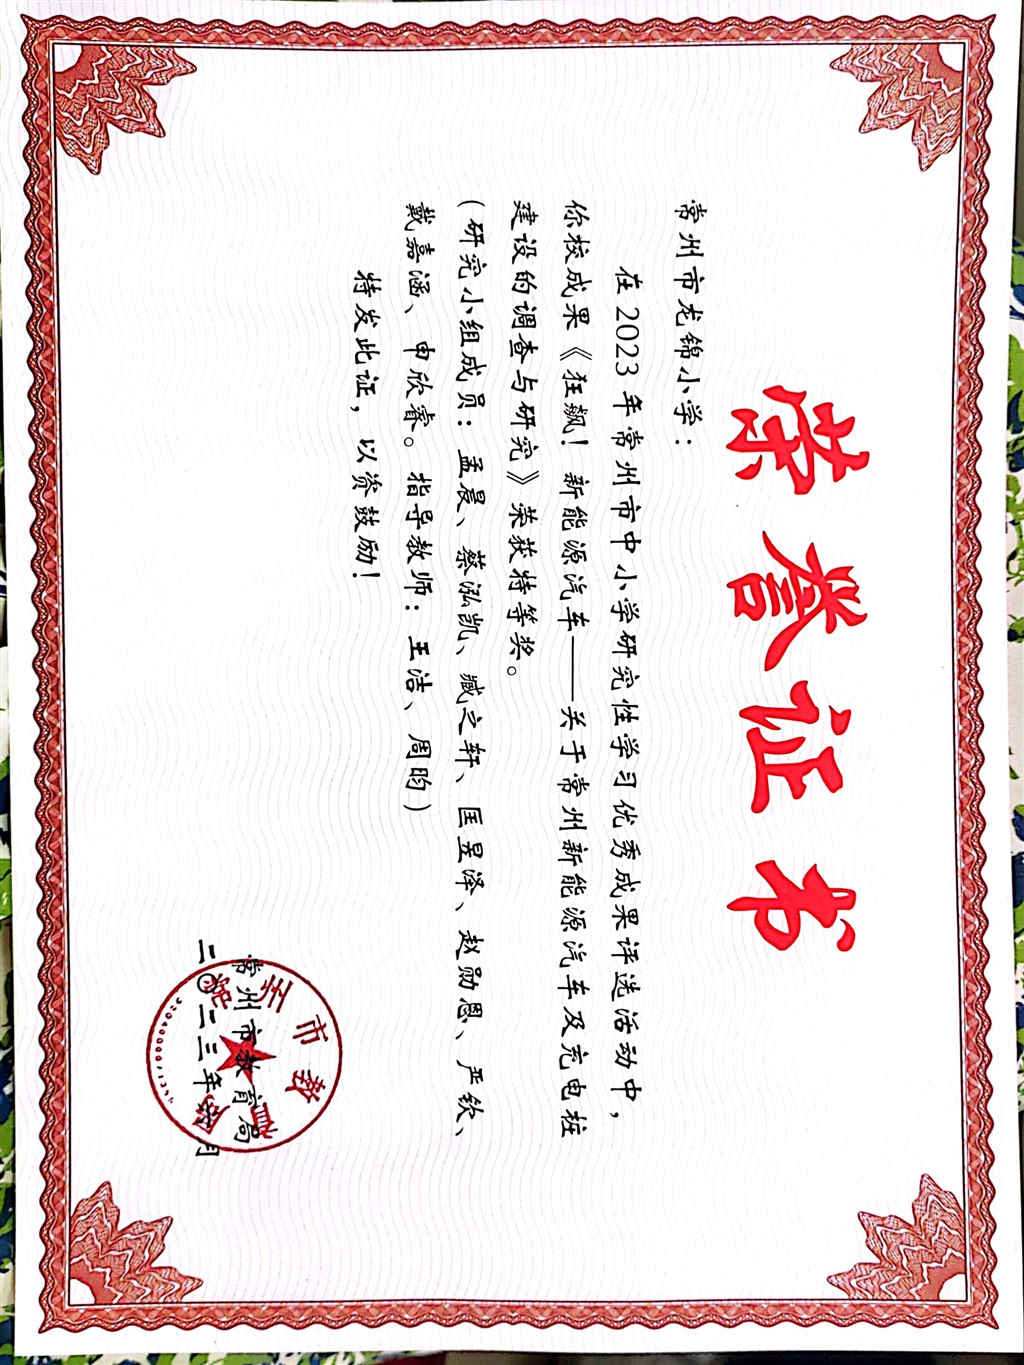 荣誉证书
常州市龙锦小学：
在 2023 年常州市中小学研究性学习优秀成果评选活动中，
你校成果《狂飙！新能源汽车——关于常州新能源汽车及充电桩
建设的调查与研究》荣获特等奖。
（研究小组成员：孟晨、蔡泓凯、臧之轩、匡昱泽、赵勋恩、严钦、
戴嘉涵、申欣睿。指导教师：王洁、周昀）
特发此证，以资鼓励！
常州市教育局
二〇二三年 月
常州市教育局